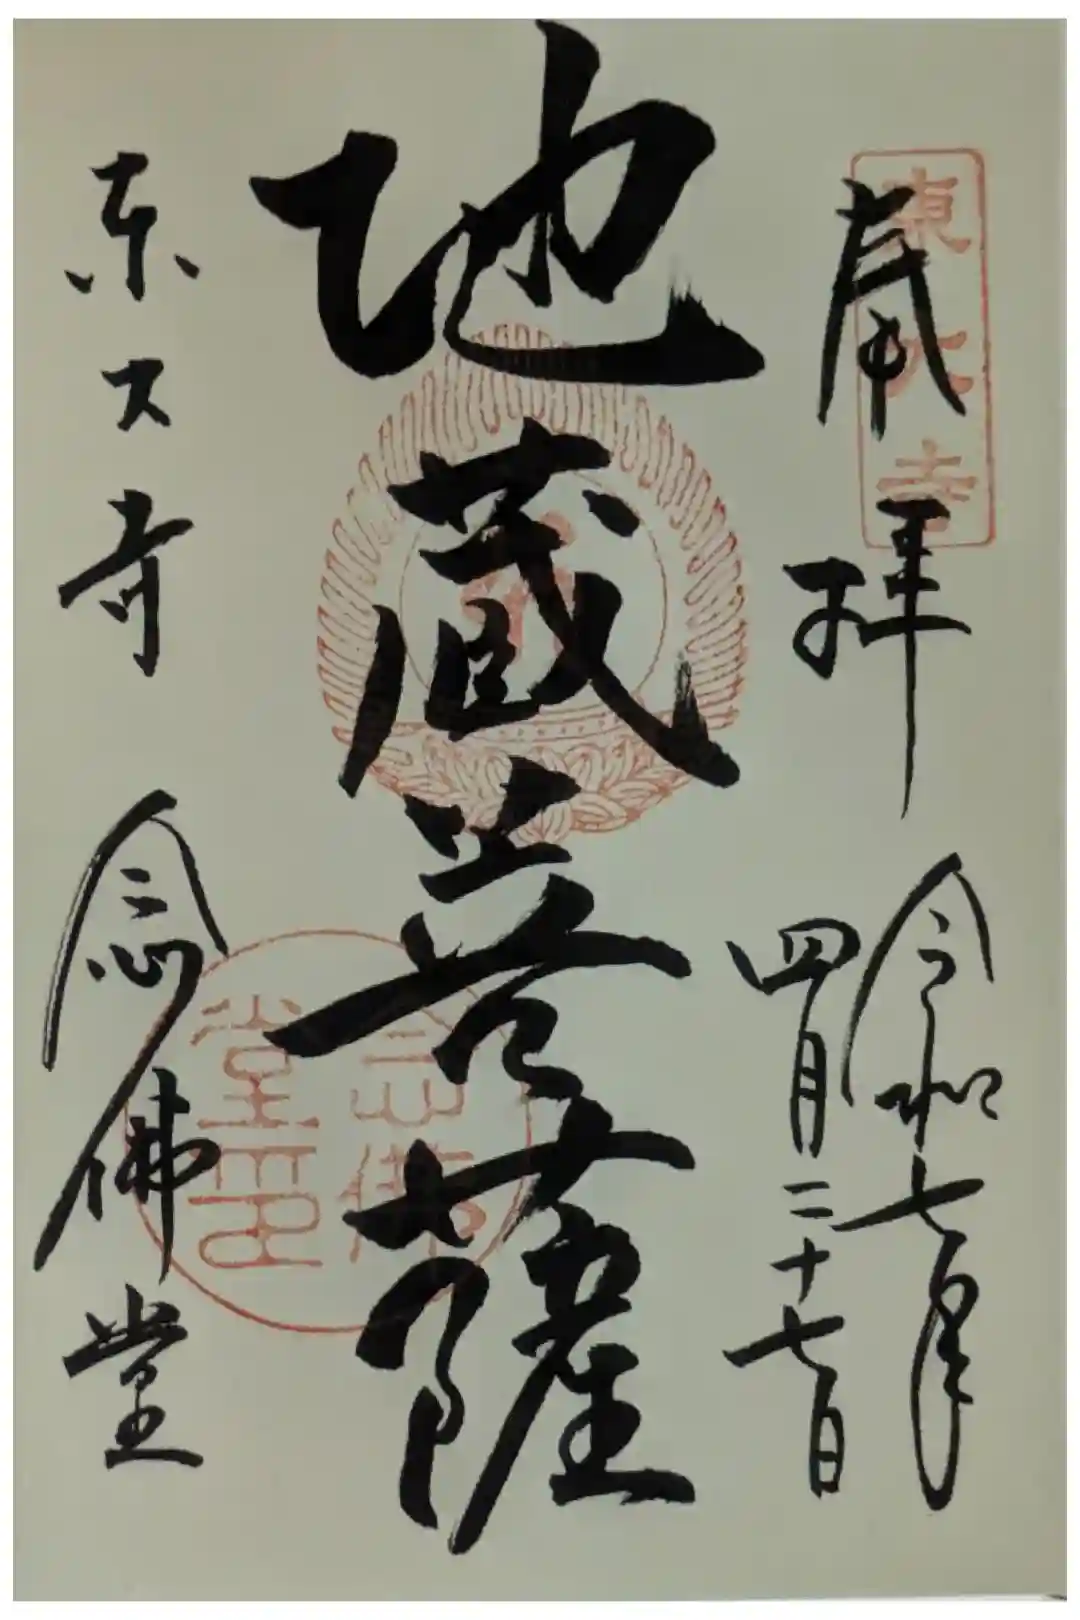 奉拝
令和七年
四月二十七日
地蔵菩薩
東大寺
念佛堂
東大寺
念佛堂印